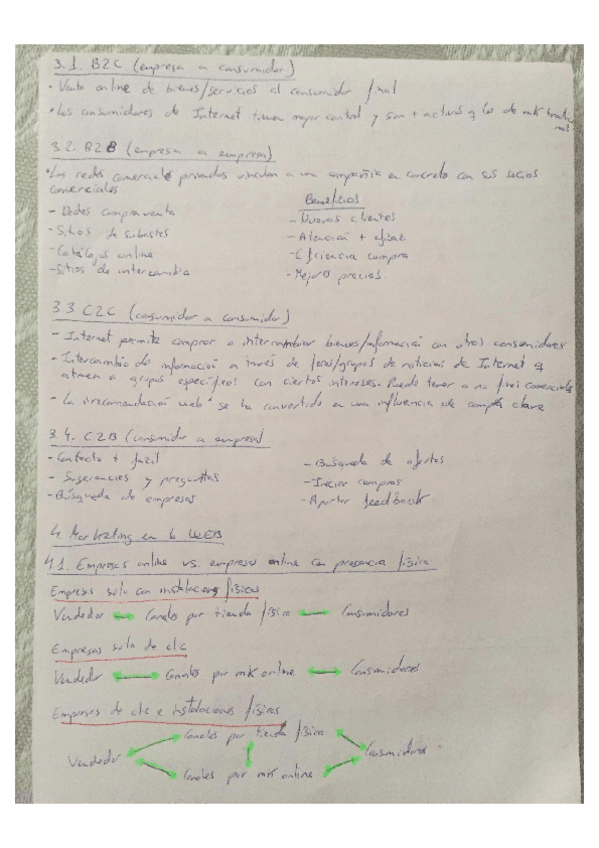 3.1. B2C (empresa a consumidor)
· Venta online de bienes/servicios al consumidor final
· Los consumidores de Internet tienen mayor control y son + activos q los de mk tradicional
3.2. B2B (empresa a empresa)
· Las redes comerciales privadas vinculan a una compañía en concreto con sus socios
comerciales
Beneficios
- Redes compraventa
- Nuevos clientes
- Sitios de subastas
- Atención + eficaz
- Catálogos online
- Eficiencia compra
- Sitios de intercambio
- Mejores precios
3.3 C2C (consumidor a consumidor)
- Internet permite comprar o intercambiar bienes/información con otros consumidores
- Intercambio de información a través de foros/grupos de noticias de Internet q
atraen a grupos específicos con ciertos intereses. Puede tener o no fines comerciales
- La "recomendación web" se ha convertido en una influencia de compra clave
3.4. C2B (consumidor a empresa)
- Contacto + fácil
- Búsqueda de ofertas
- Sugerencias y preguntas
- Iniciar compras
- Búsqueda de empresas
- Aportar feedback
4. Marketing en la WEB
4.1. Empresas online vs. empresas online con presencia física
Empresas solo con instalaciones físicas
Vendedor ↔ Canales por tienda física ↔ Consumidores
Empresas solo de clc
Vendedor ↔ Canales por mk online ↔ Consumidores
Empresas de clc e instalaciones físicas
Canales por tienda física
Vendedor
Consumidores
Canales por mk online